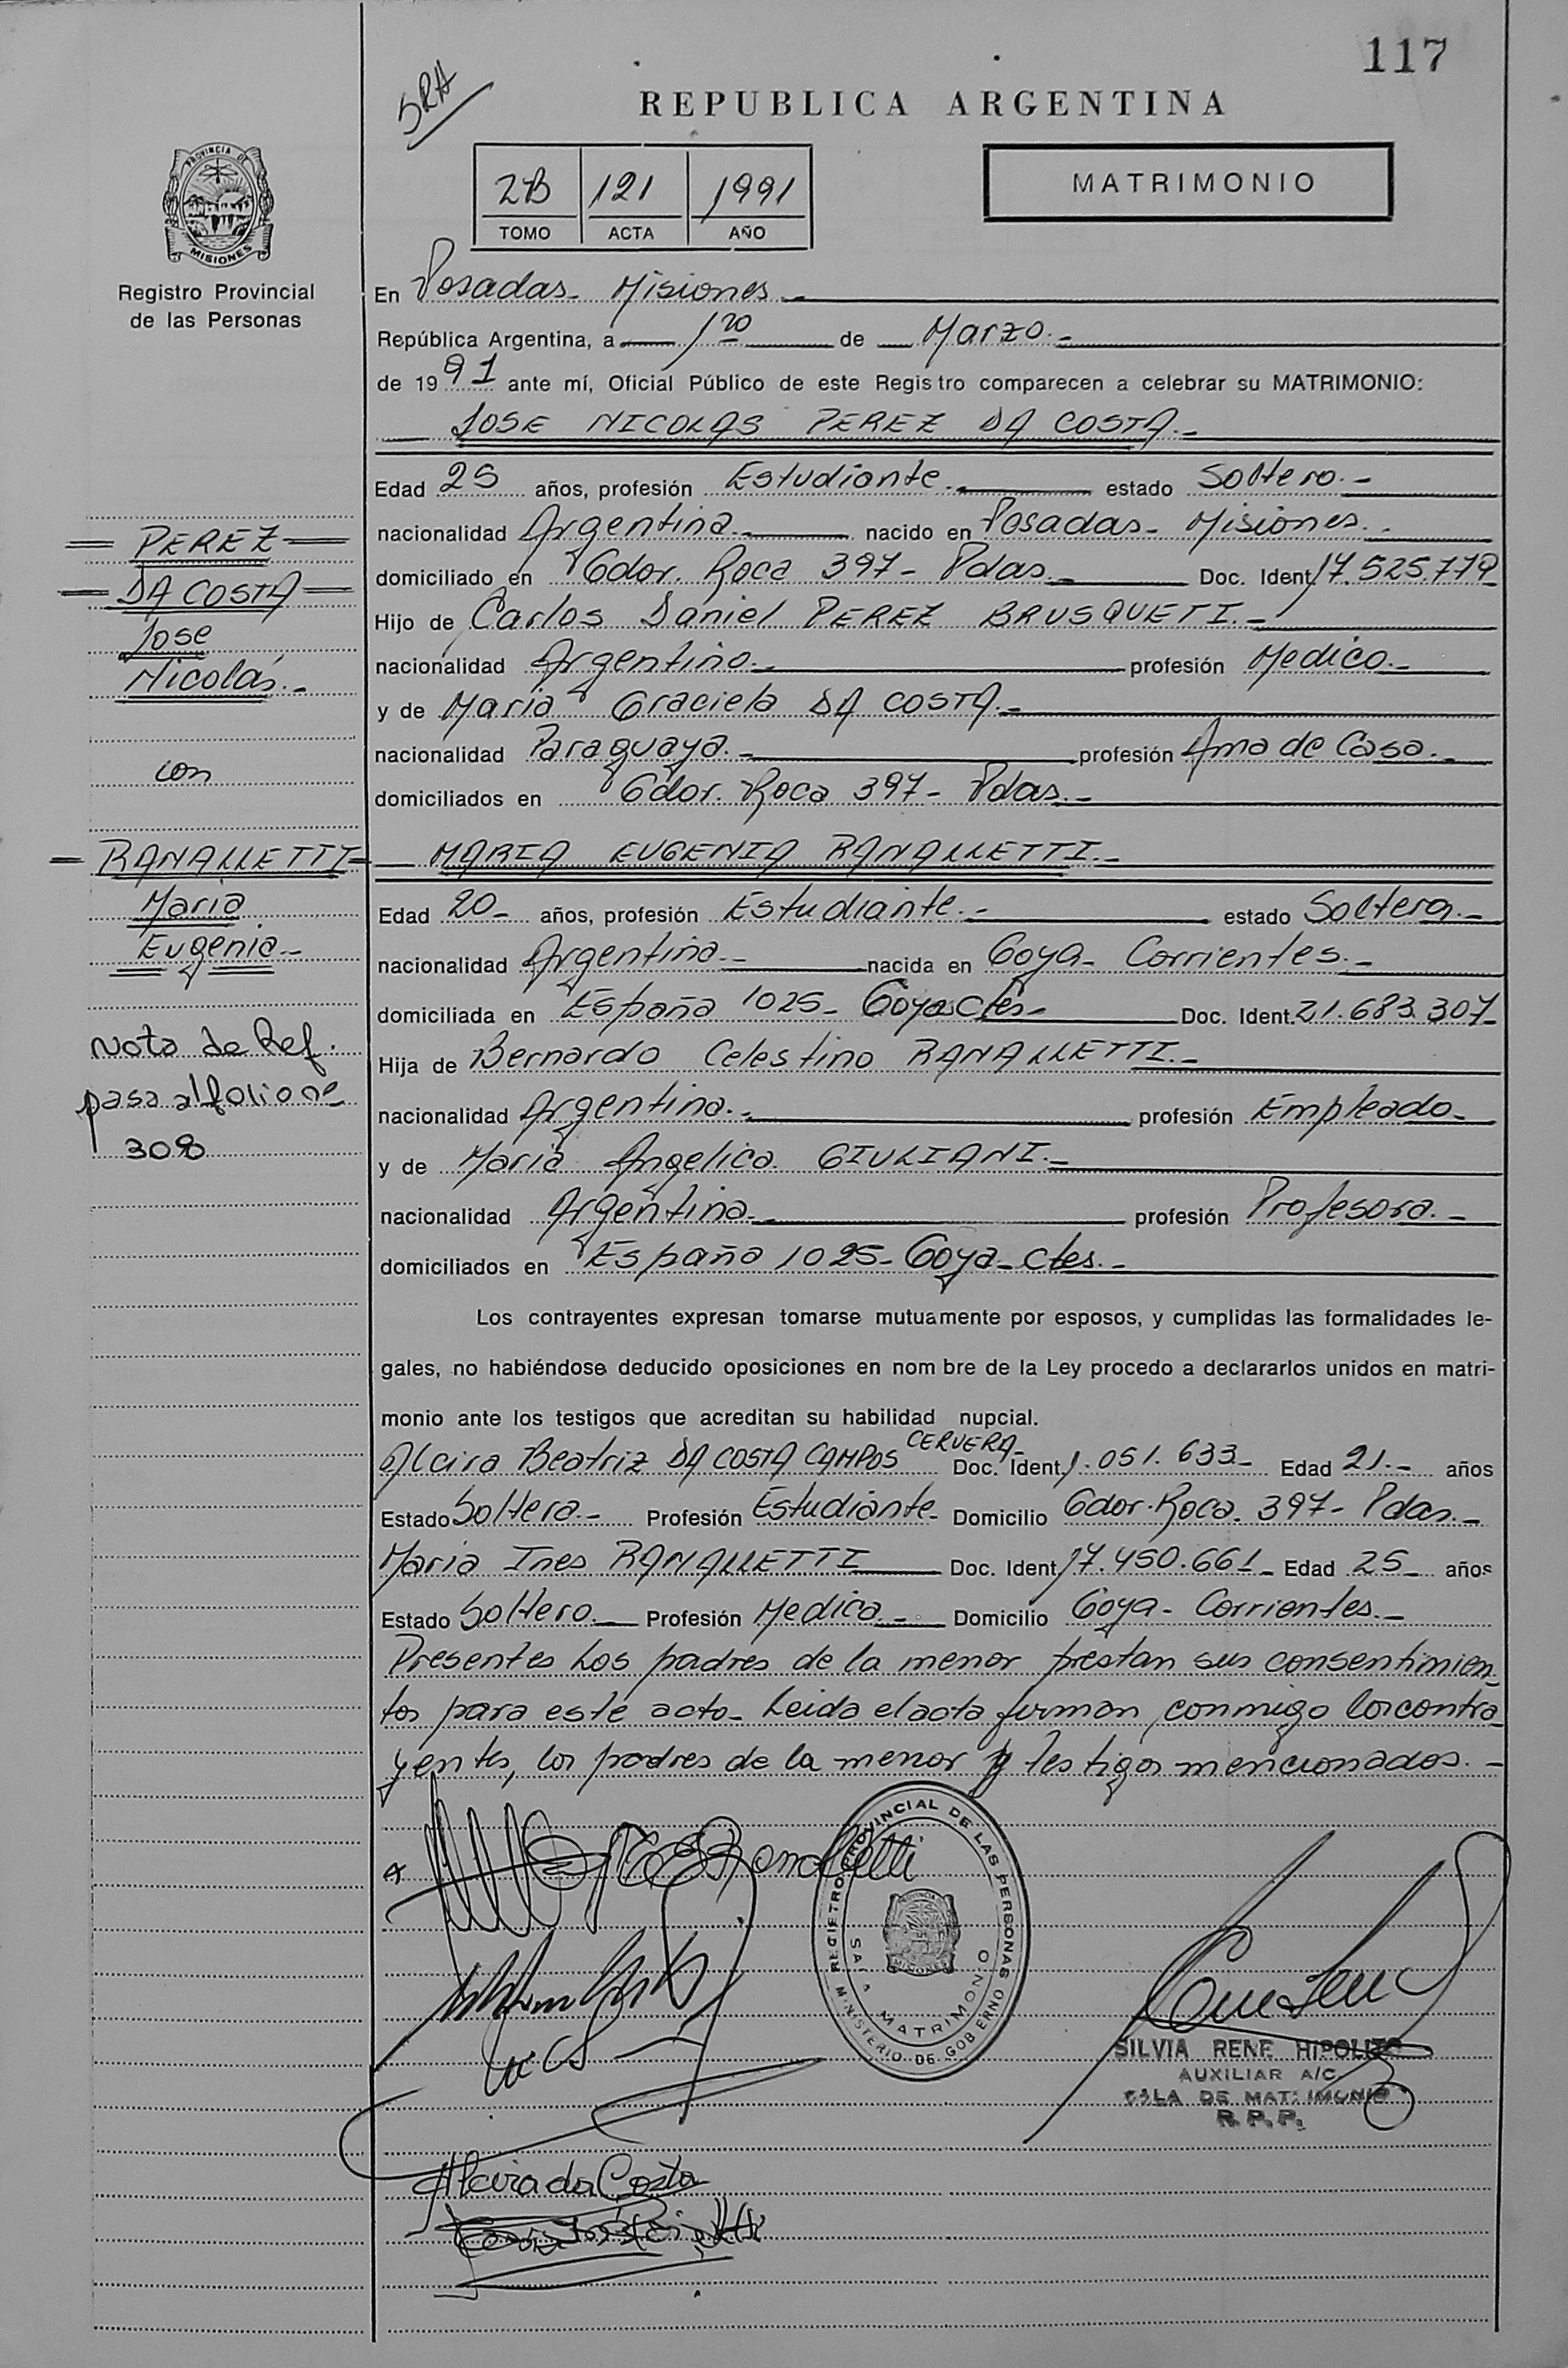 117
SRA
REPUBLICA ARGENTINA
PROVINCIA DE MISIONES
Registro Provincial
de las Personas
2B 121 1991
TOMO ACTA AÑO
MATRIMONIO
En Posadas - Misiones.-
República Argentina, a 1ro de Marzo.-
de 1991 ante mí, Oficial Público de este Registro comparecen a celebrar su MATRIMONIO:
JOSE NICOLAS PEREZ DA COSTA.-
Edad 25 años, profesión Estudiante.- estado Soltero.-
nacionalidad Argentina.- nacido en Posadas - Misiones.-
domiciliado en Gdor. Roca 397- Pdas.- Doc. Ident. 17.525.779
Hijo de Carlos Daniel PEREZ BRUSQUETI.-
nacionalidad Argentino.- profesión Medico.-
y de Maria Graciela DA COSTA.-
nacionalidad Paraguaya.- profesión Ama de Casa.-
domiciliados en Gdor. Roca 397- Pdas.-
MARIA EUGENIA RANALLETTI.-
Edad 20- años, profesión Estudiante.- estado Soltera.-
nacionalidad Argentina.- nacida en Goya- Corrientes.-
domiciliada en España 1025- Goya Ctes- Doc. Ident. 21.683.307-
Hija de Bernardo Celestino RANALLETTI.-
nacionalidad Argentina.- profesión Empleado-
y de Maria Angelica GIULIANI.-
nacionalidad Argentina.- profesión Profesora.-
domiciliados en España 1025- Goya- Ctes.-
Los contrayentes expresan tomarse mutuamente por esposos, y cumplidas las formalidades le-
gales, no habiéndose deducido oposiciones en nombre de la Ley procedo a declararlos unidos en matri-
monio ante los testigos que acreditan su habilidad nupcial.
Alcira Beatriz DA COSTA CAMPOS CERVERA- Doc. Ident. 1.051.633- Edad 21.- años
Estado Soltera.- Profesión Estudiante- Domicilio Gdor. Roca. 397- Pdas.-
Maria Ines RANALLETTI Doc. Ident. 17.450.661- Edad 25- años
Estado Soltero.- Profesión Medica.- Domicilio Goya- Corrientes.-
Presentes Los padres de la menor prestan sus consentimien
tos para este acto- Leida el acta firman conmigo los contra
yentes, los padres de la menor y testigos mencionados.-
PEREZ
DA COSTA
Jose
Nicolás.-
con
RANALLETTI
Maria
Eugenia-
Nota de Ref.
pasa al folio nº
308
Ranalletti
REGISTRO PROVINCIAL DE LAS PERSONAS
MINISTERIO DE GOBIERNO
SALA MATRIMONIO
PROVINCIA DE MISIONES
SILVIA RENE HIPOLITO
AUXILIAR A/C.
SALA DE MATRIMONIO
R.P.P.
Alcira da Costa